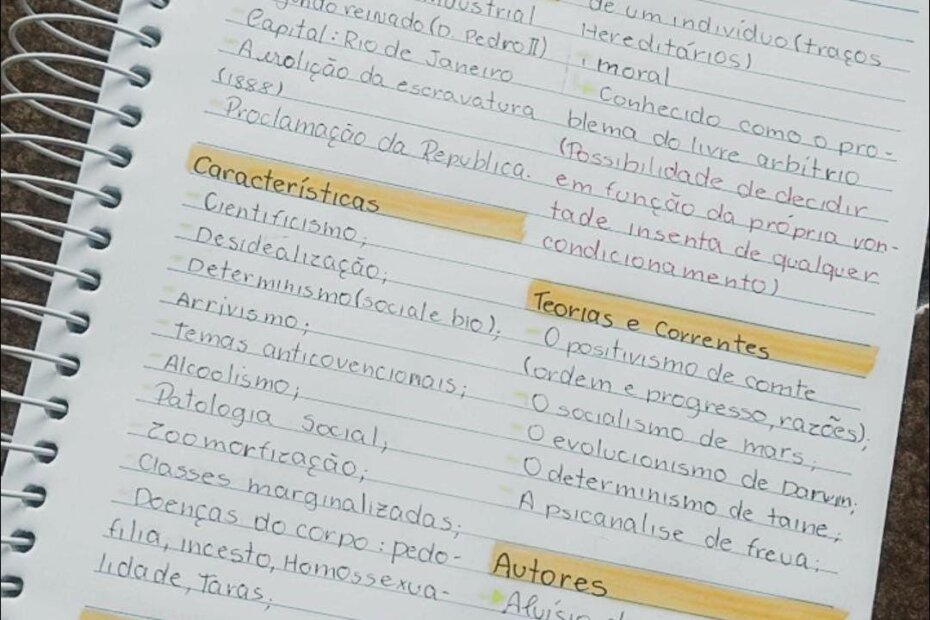 reinado (D. Pedro II)
Capital: Rio de Janeiro
A abolição da escravatura
(1888)
Proclamação da Republica.
Características
Cientificismo;
Desidealização;
Determinismo (social e bio);
Arrivismo;
Temas anticovencionais;
Alcoolismo;
Patologia Social;
Zoomorfização;
Classes marginalizadas;
Doenças do corpo: pedo-
filia, incesto, Homossexua-
lidade, Taras;
de um indivíduo (traços
Hereditários)
moral
Conhecido como o pro-
blema do livre arbítrio
(Possibilidade de decidir
em função da própria von-
tade insenta de qualquer
condicionamento)
Teorias e Correntes
O positivismo de comte
(ordem e progresso, razões);
O socialismo de mars;
O evolucionismo de Darwin;
O determinismo de taine;
A psicanalise de freud;
Autores
Aluísio